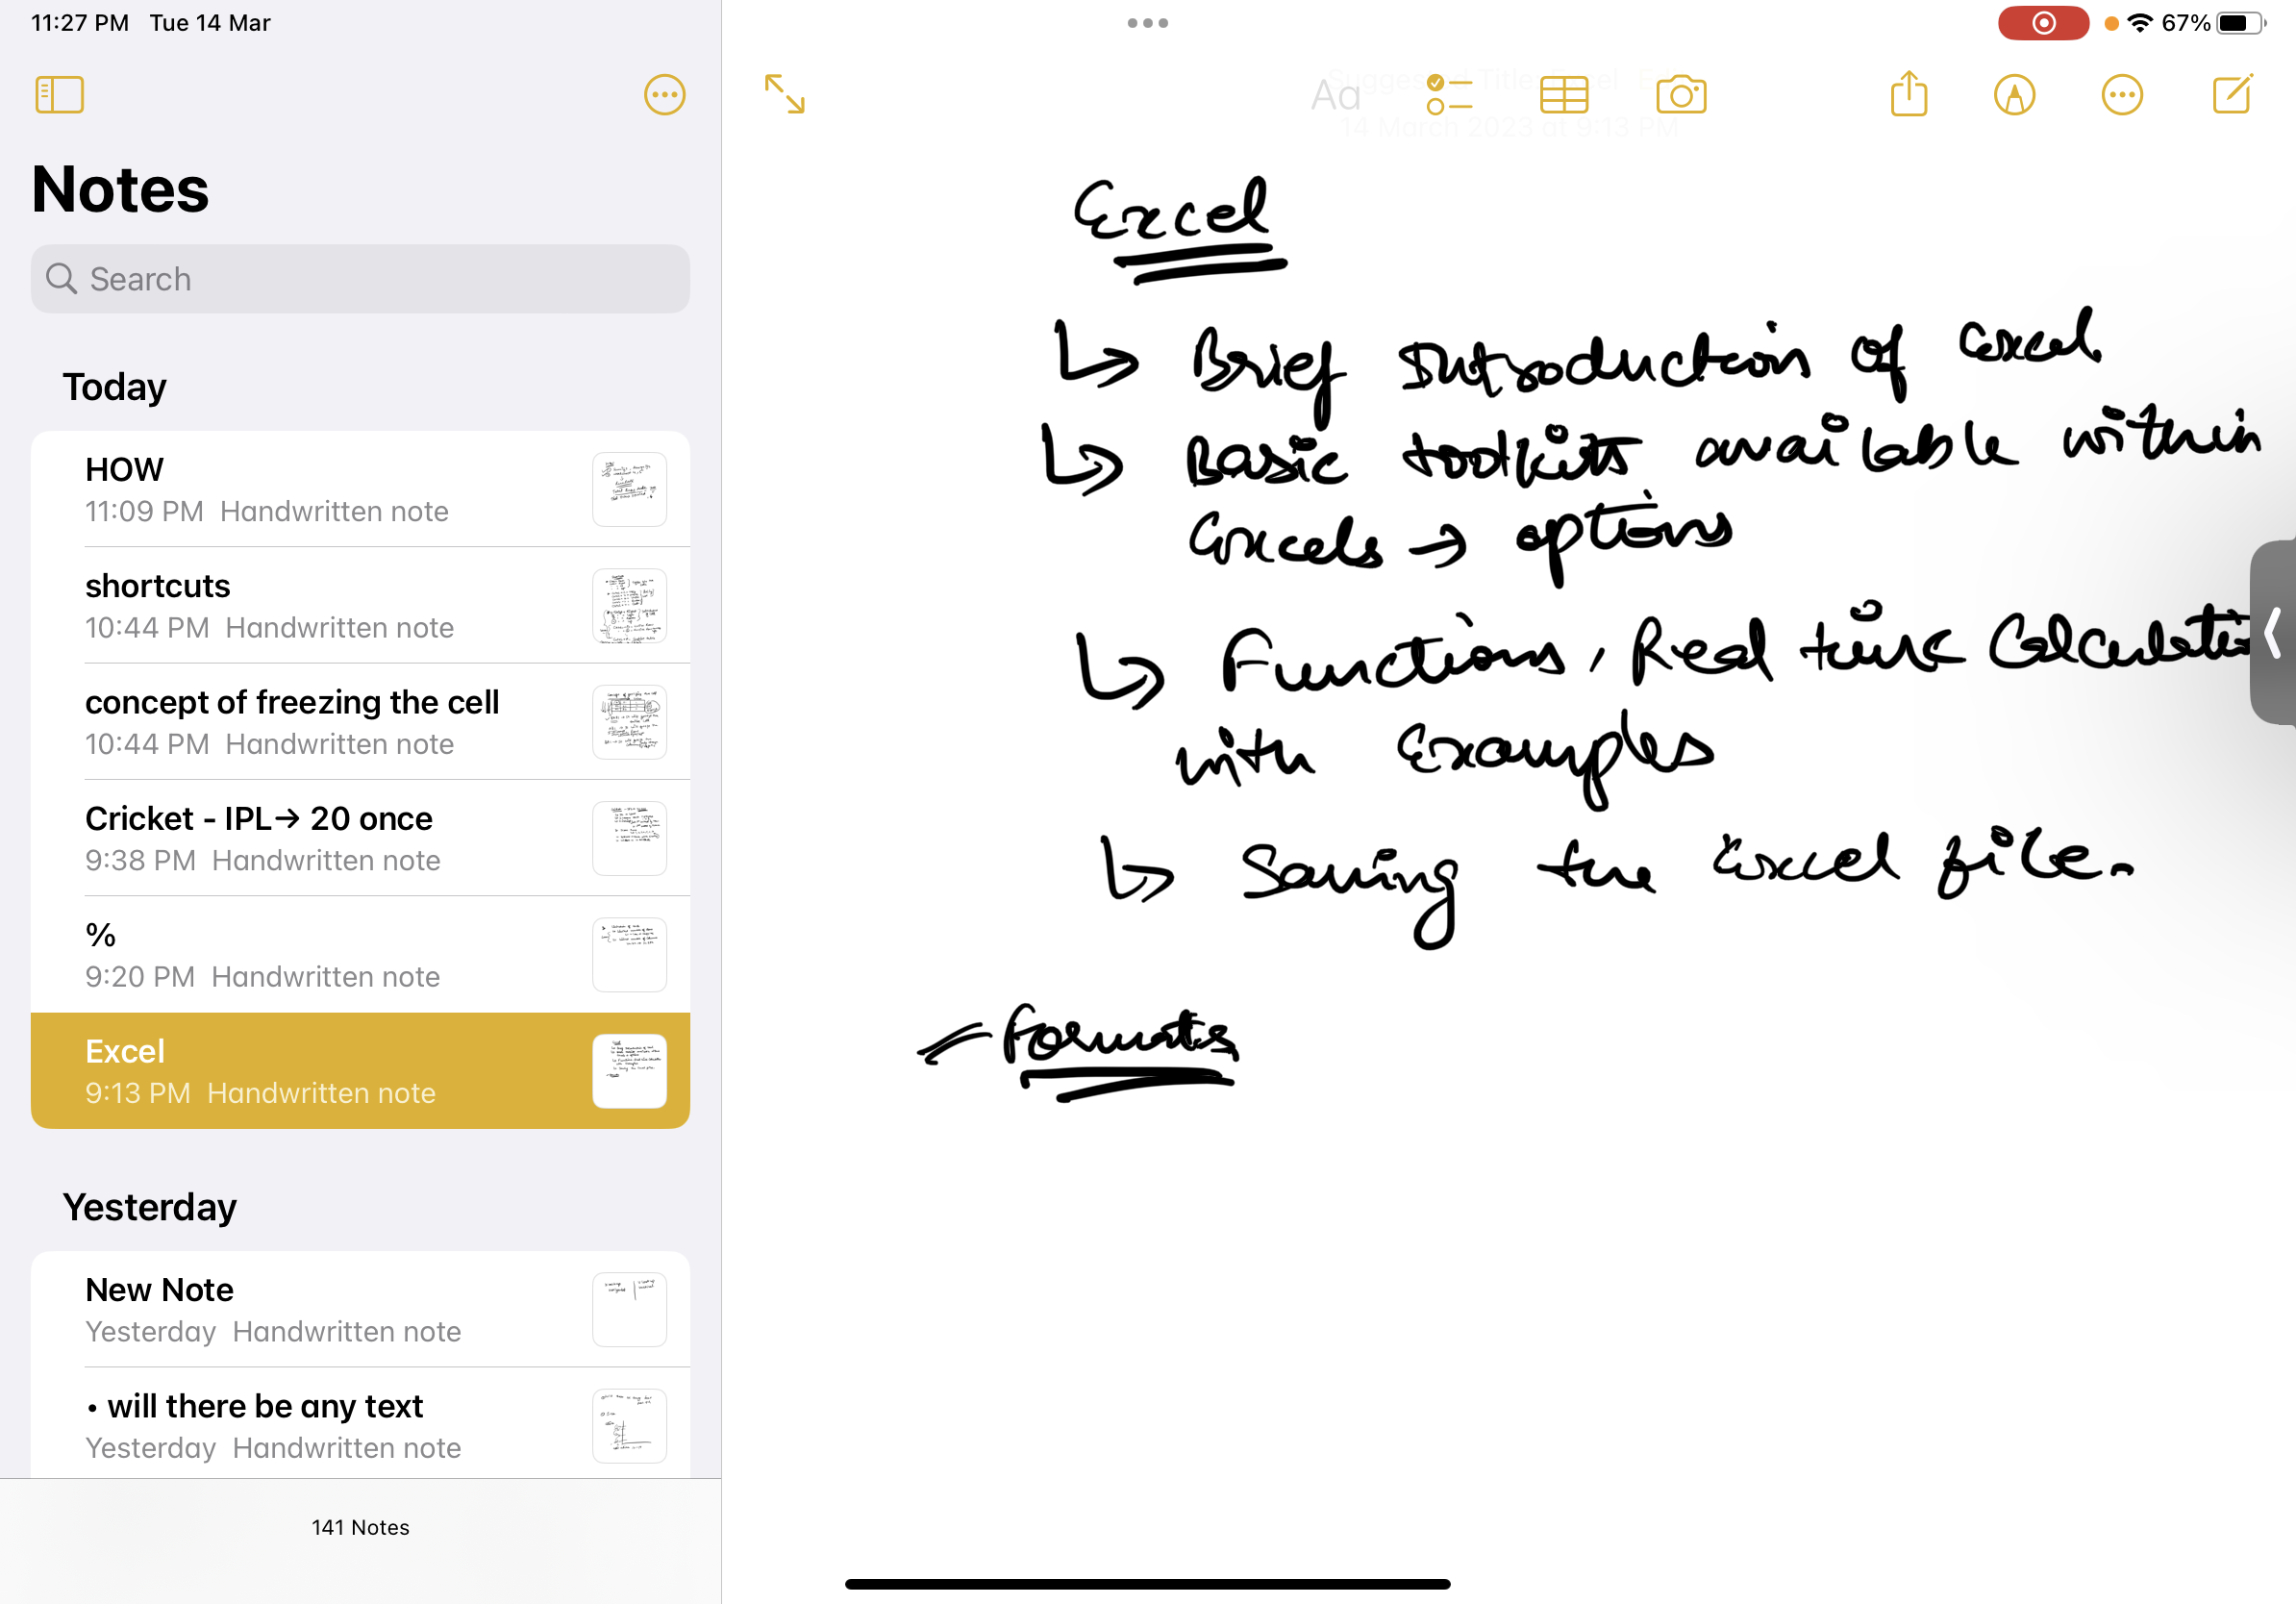 11:27 PM Tue 14 Mar
67%
Notes
Search
Today
HOW
11:09 PM Handwritten note
shortcuts
10:44 PM Handwritten note
concept of freezing the cell
10:44 PM Handwritten note
Cricket - IPL→ 20 once
9:38 PM Handwritten note
%
9:20 PM Handwritten note
Excel
9:13 PM Handwritten note
Yesterday
New Note
Yesterday Handwritten note
• will there be any text
Yesterday Handwritten note
141 Notes
Aa
Suggested Title: Excel
14 March 2023 at 9:13 PM
Excel
↳ Brief Introduction of excel
↳ Basic toolkits available within
Excels → options
↳ Functions, Real time Calculatio
with Examples
↳ Saving the Excel file.
Formats